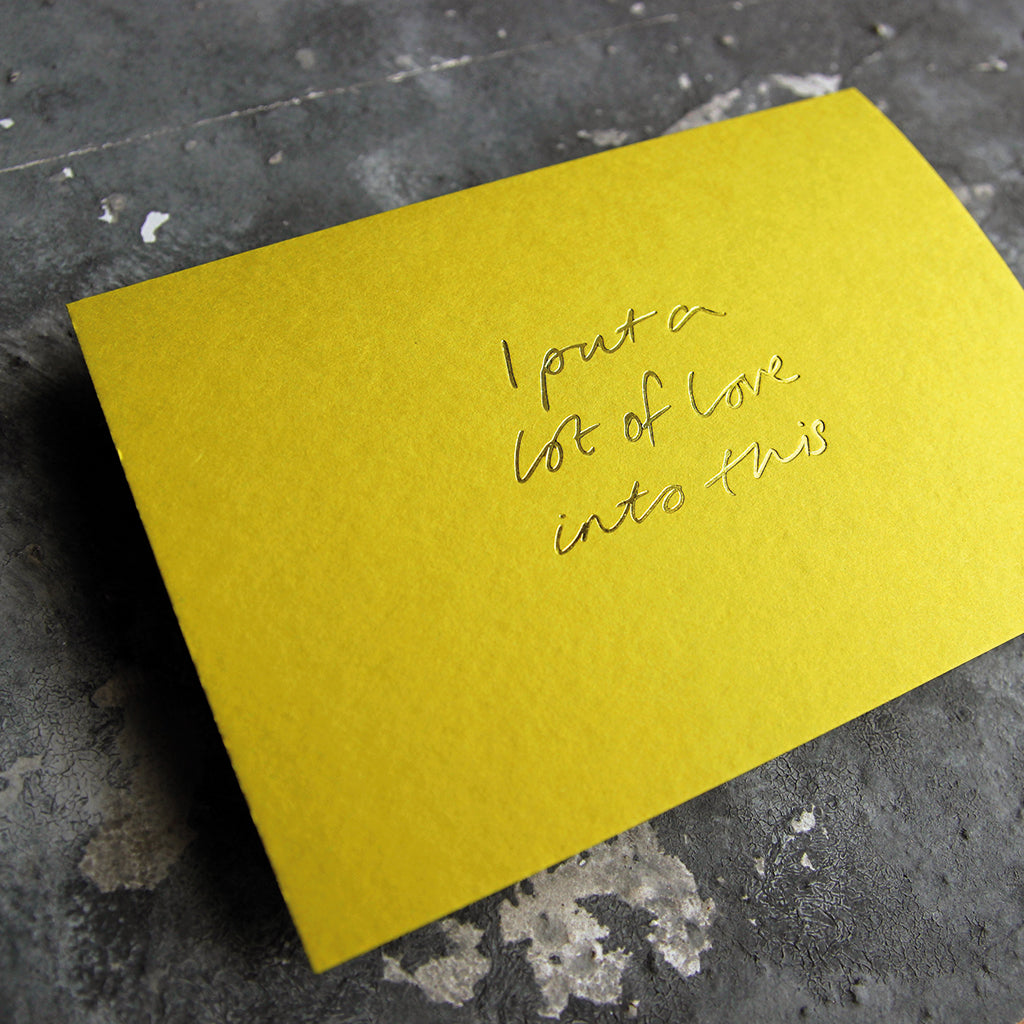 I put a
lot of love
into this